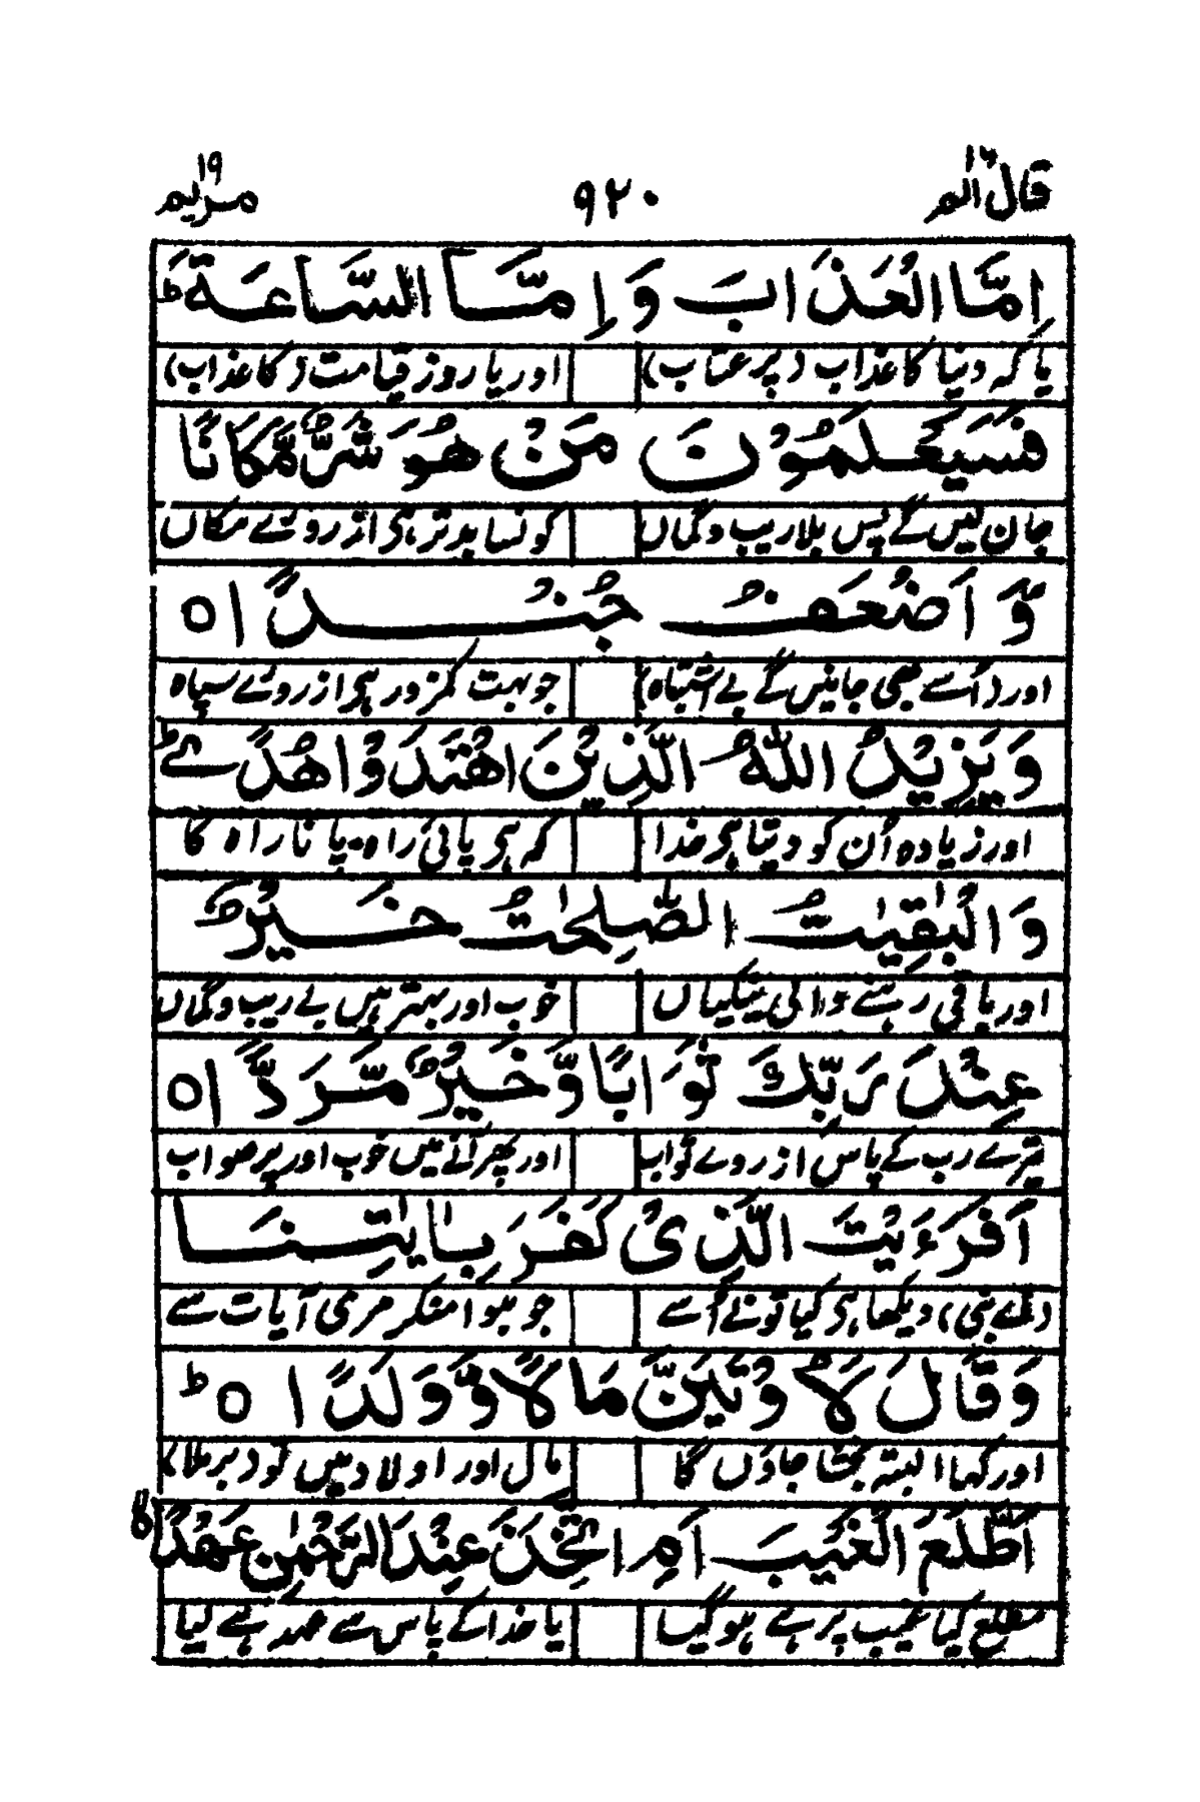 قال الم ١٦
٩٢٠
مریم ١٩
اِمَّا الْعَذَابَ وَاِمَّا السَّاعَةَ ؕ
یا کہ دنیا کا عذاب (پر عتاب) اور یا روز قیامت (کا عذاب)
فَسَيَعْلَمُوْنَ مَنْ هُوَ شَرٌّ مَّكَانًا
جان لیں گے پس بلا ریب وگماں کونسا بدتر ہی از روئے مکاں
وَّ اَضْعَفُ جُنْدًا ٥
اور (اُسے بھی جانیں گے بے اشتباہ) جو بہت کمزور ہی از روئے سپاہ
وَيَزِيْدُ اللّٰهُ الَّذِيْنَ اهْتَدَوْا هُدًى ؕ
اور زیادہ اُن کو دیتا ہی خدا کہ ہی پائی راہ یا نا راہ کا
وَالْبٰقِيٰتُ الصّٰلِحٰتُ خَيْرٌ
اور باقی رہنے والی نیکیاں خوب اور بہتر ہیں بے ریب وگماں
عِنْدَ رَبِّكَ ثَوَابًا وَّخَيْرٌ مَّرَدًّا ٥
تیرے رب کے پاس از روے ثواب اور پھر آنے میں خوب اور پر صواب
اَفَرَءَيْتَ الَّذِىْ كَفَرَ بِاٰيٰتِنَا
(اے نبی) دیکھا ہی کیا تونے اُسے جو ہوا منکر مری آیات سے
وَقَالَ لَاُوْتَيَنَّ مَالًا وَّوَلَدًا ٥ ؕ
اور کہا البتہ بخشا جاؤں گا مال اور اولاد میں تو (برملا)
اَطَّلَعَ الْغَيْبَ اَمِ اتَّخَذَ عِنْدَ الرَّحْمٰنِ عَهْدًا
مطلع کیا غیب پر ہے ہو گیا یا خدا کے پاس سے عہد ہے لیا